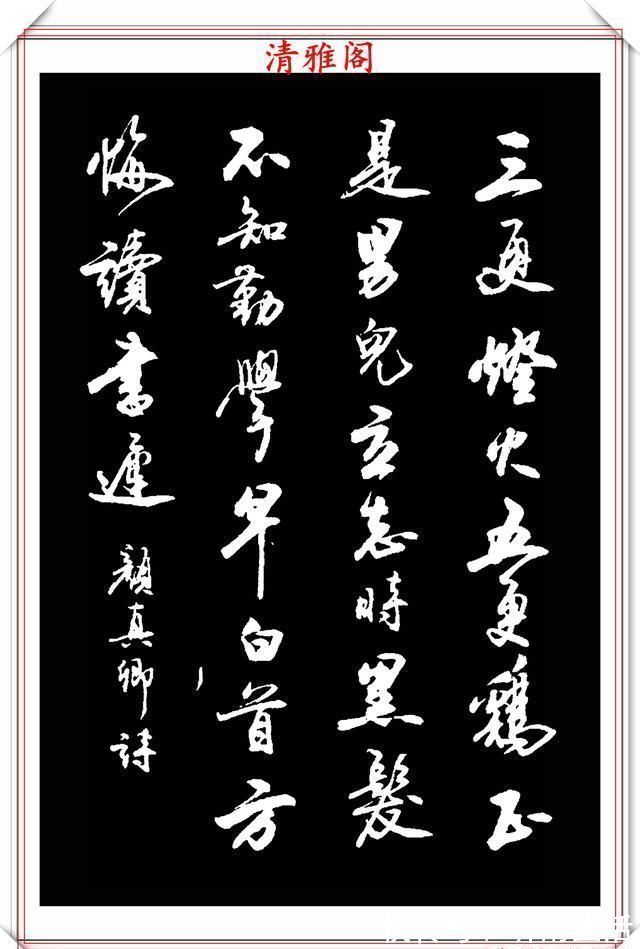 清雅阁
三更燈火五更鷄正
是男兒立志時黑髮
不知勤學早白首方
悔讀書遲
顏真卿詩